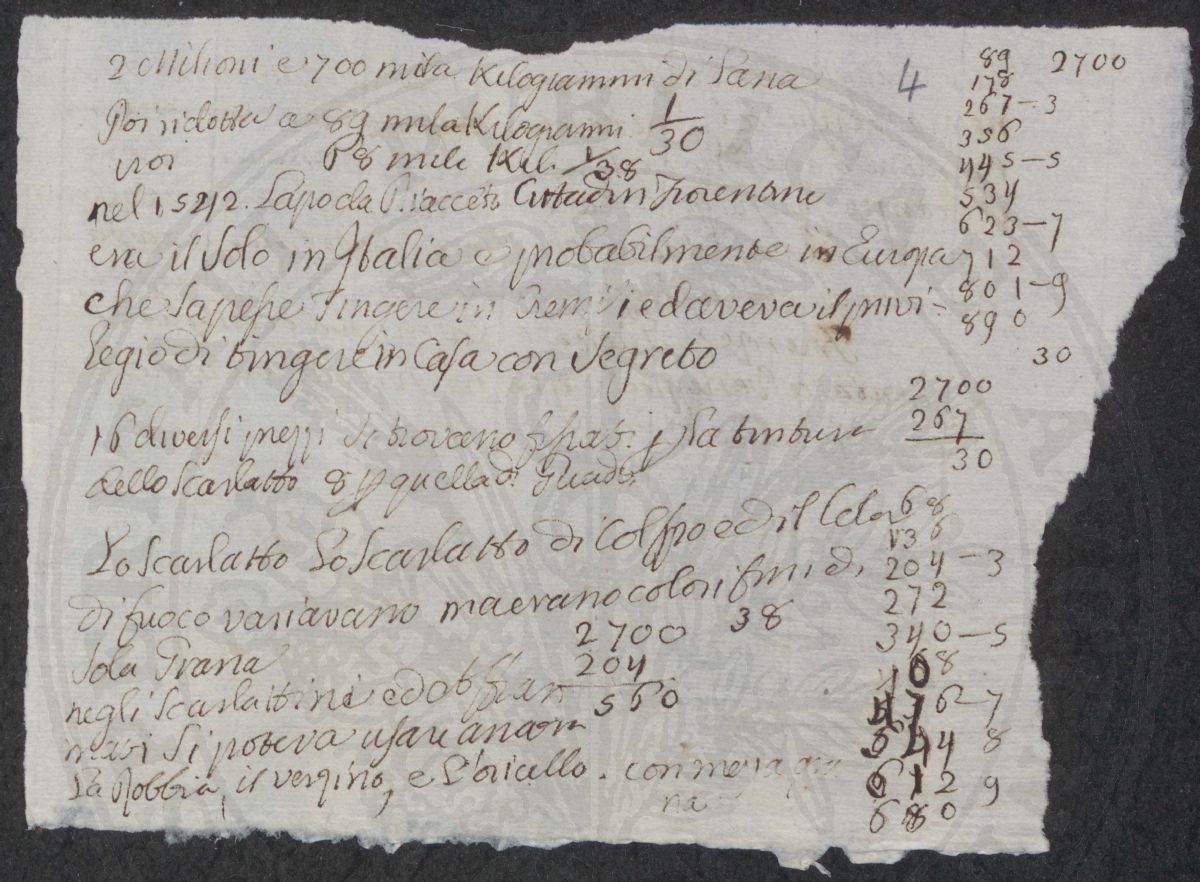 2 Milioni e 700 mila Kilogrammi di Lana
4
89 2700
178
Poi ridotta a 89 mila Kilogrammi 1/30
267-3
356
poi 68 mila Kil. 1/38
445-5
nel 1542. Lapo da Cittadin Fiorentino
534
623-7
era il Solo in Italia e probabilmente in Europa
712
che sapesse Tingere in ed aveva il privi-
801-9
890
legio di tingere in Casa con Segreto
30
2700
16 diversi prezzi si trovano fissati p la tintura
267
30
dello Scarlatto 8 p quella di Guado
Lo Scarlatto Lo Scarlatto di Colpo ed il Color
68
136
di fuoco variavano ma erano colori fini di
204-3
272
2700 38
340-5
Sola Grana
204
408
negli Scarlattini ed
560
476-7
si poteva usare ancora
544 8
La Robbia, il verzino, e L'oricello. con mezza gra
612 9
na
680